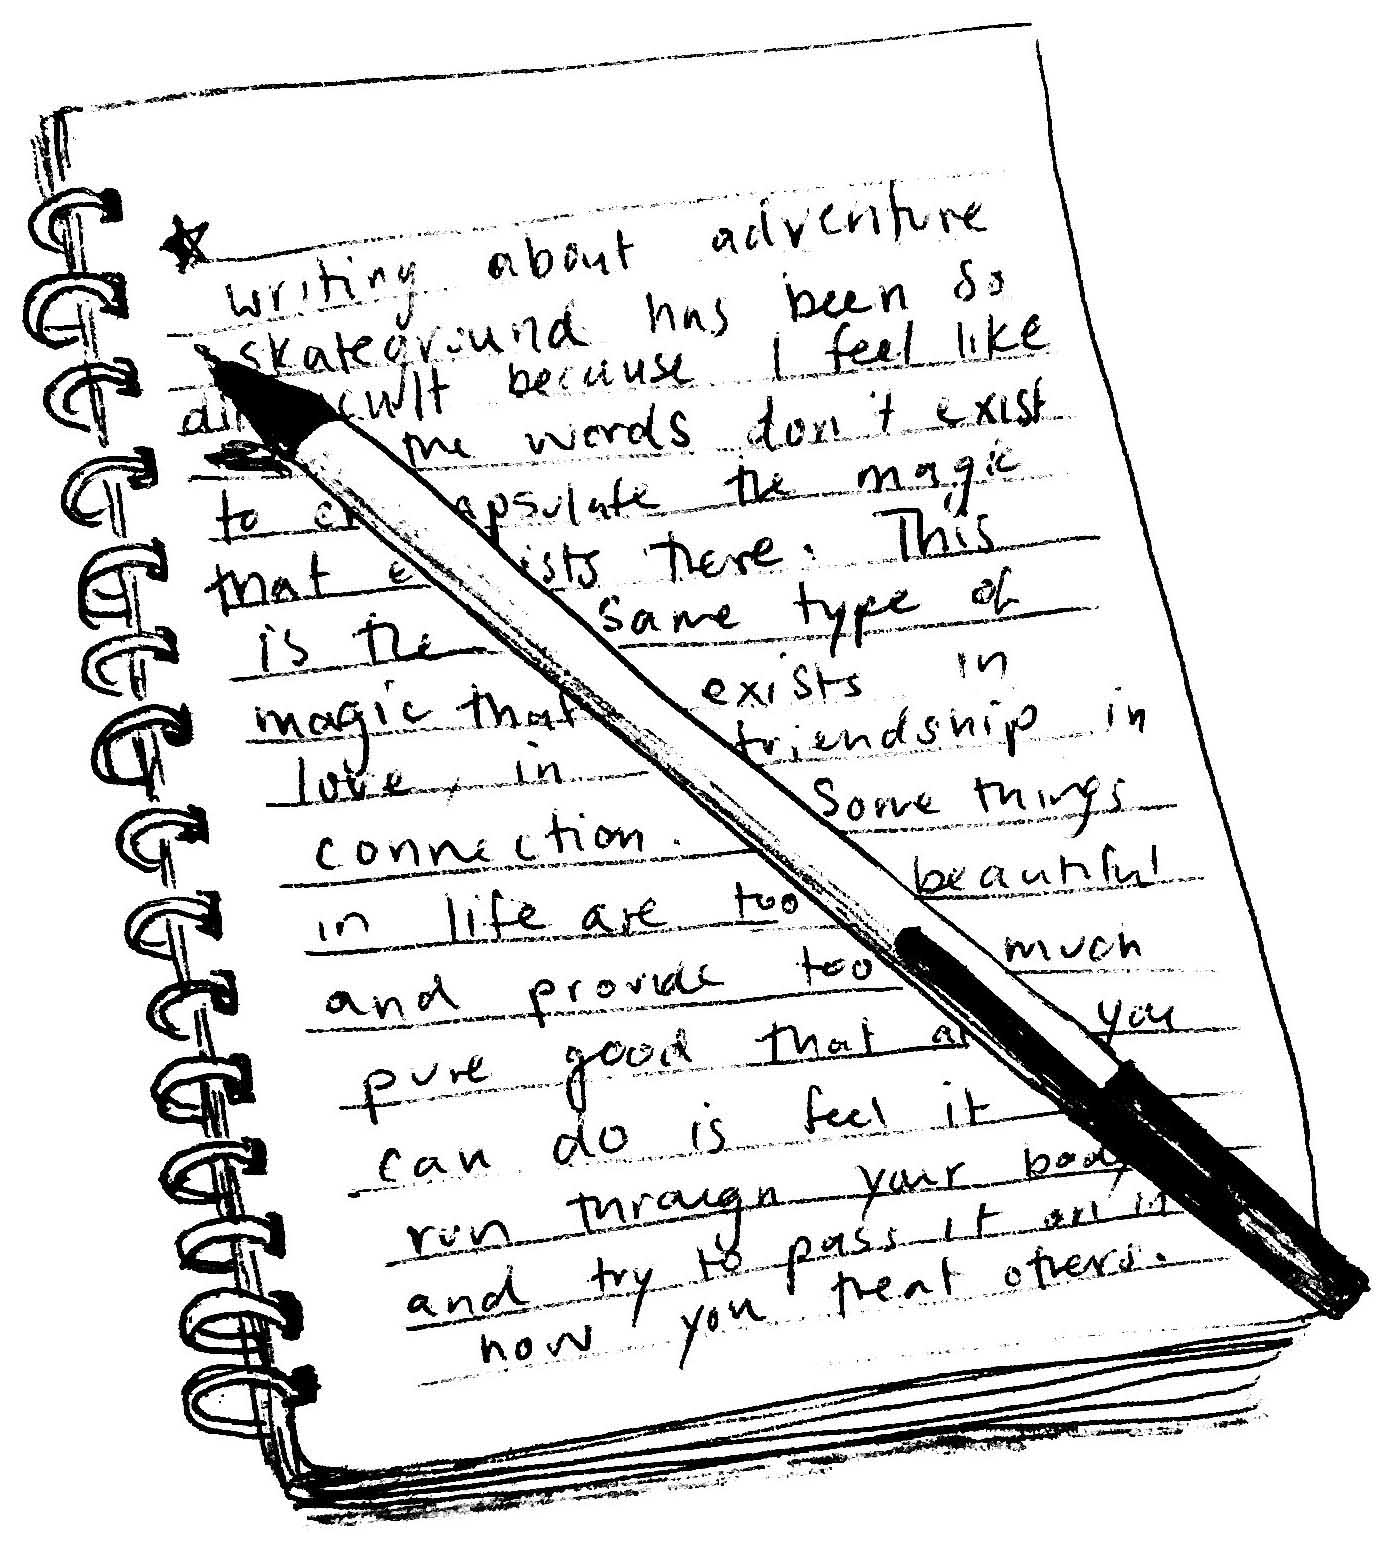 writing about adventure
skateground has been so
difficult because I feel like
the words don't exist
to encapsulate the magic
that exists there. This
is the same type of
magic that exists in
love, in friendship in
connection. Some things
in life are too beautiful
and provide too much
pure good that all you
can do is feel it
run through your body
and try to pass it on in
how you treat others.